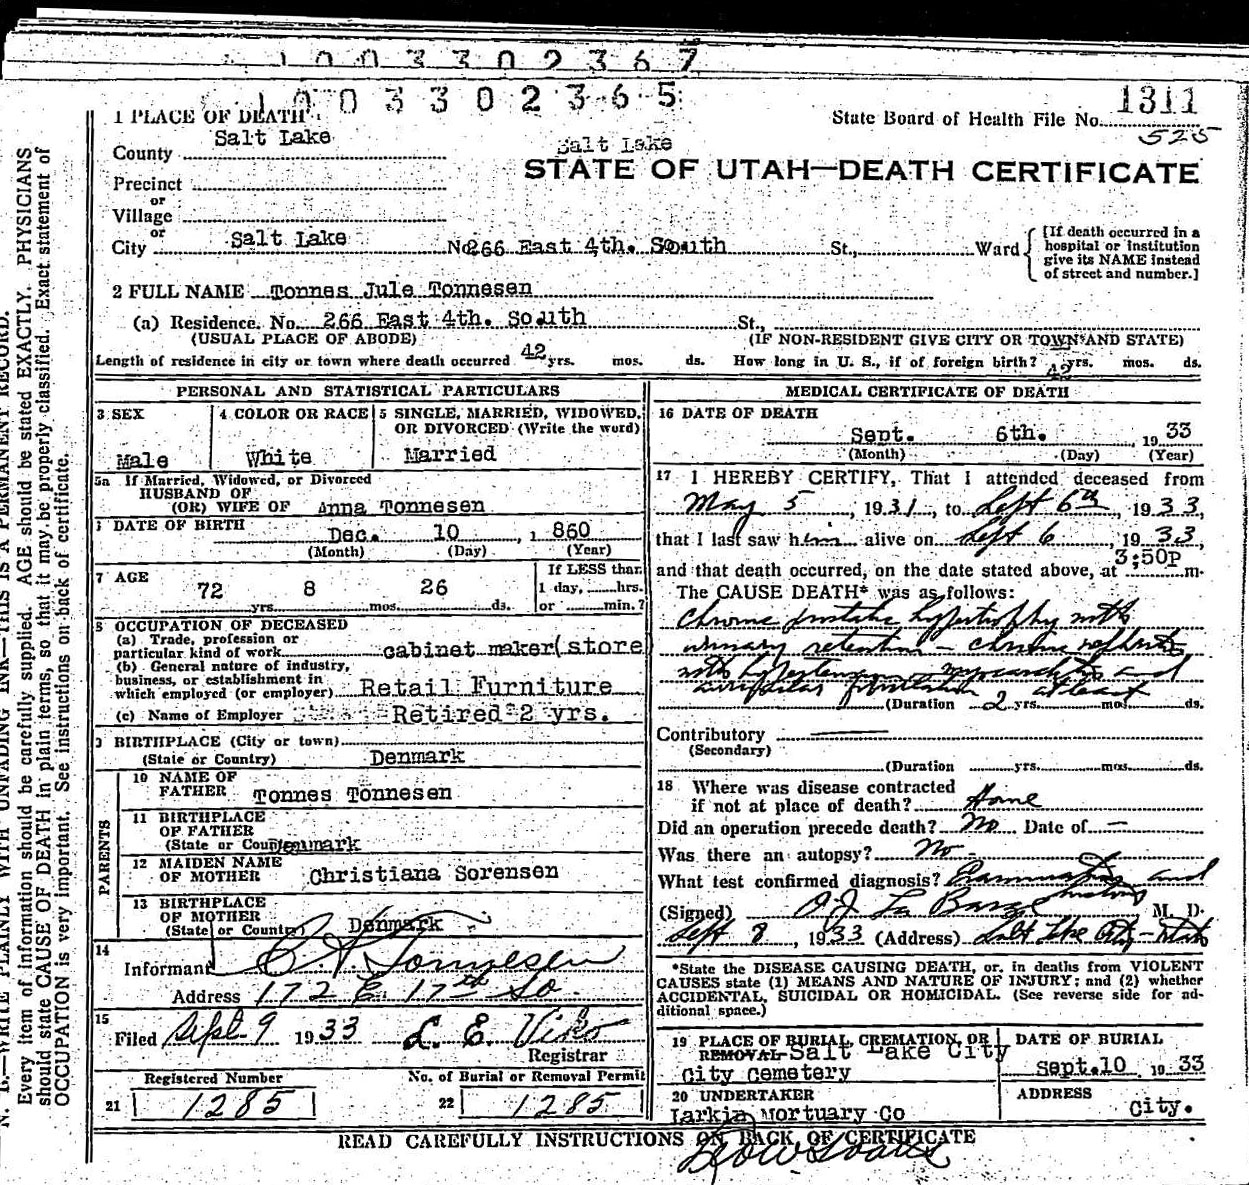 1003302367
1003302365
1311
State Board of Health File No.
525
1 PLACE OF DEATH
County Salt Lake
Salt Lake
STATE OF UTAH—DEATH CERTIFICATE
Precinct
or
Village
or
City Salt Lake No. 266 East 4th. South St., Ward
[If death occurred in a hospital or institution give its NAME instead of street and number.]
2 FULL NAME Tonnes Jule Tonnesen
(a) Residence. No. 266 East 4th. South St.,
(USUAL PLACE OF ABODE) (IF NON-RESIDENT GIVE CITY OR TOWN AND STATE)
Length of residence in city or town where death occurred 42 yrs. mos. ds. How long in U. S., if of foreign birth? 42 yrs. mos. ds.
PERSONAL AND STATISTICAL PARTICULARS
3 SEX
Male
4 COLOR OR RACE
White
5 SINGLE, MARRIED, WIDOWED, OR DIVORCED (Write the word)
Married
5a If Married, Widowed, or Divorced
HUSBAND OF
(OR) WIFE OF Anna Tonnesen
DATE OF BIRTH Dec. 10, 1860
(Month) (Day) (Year)
7 AGE
72 yrs. 8 mos. 26 ds.
If LESS than 1 day, hrs. or min.?
8 OCCUPATION OF DECEASED
(a) Trade, profession or
particular kind of work cabinet maker(store
(b) General nature of industry,
business, or establishment in
which employed (or employer) Retail Furniture
(c) Name of Employer Retired 2 yrs.
9 BIRTHPLACE (City or town)
(State or Country) Denmark
PARENTS
10 NAME OF
FATHER Tonnes Tonnesen
11 BIRTHPLACE
OF FATHER
(State or Country) Denmark
12 MAIDEN NAME
OF MOTHER Christiana Sorensen
13 BIRTHPLACE
OF MOTHER
(State or Country) Denmark
14
Informant Tonnesen
Address 172 E 17th So.
15
Filed Sept. 9 1933 L. E. Viko
Registrar
Registered Number
21 1285
No. of Burial or Removal Permit
22 1285
MEDICAL CERTIFICATE OF DEATH
16 DATE OF DEATH
Sept. 6th., 1933
(Month) (Day) (Year)
17 I HEREBY CERTIFY, That I attended deceased from
May 5, 1931, to Sept 6th, 1933,
that I last saw him alive on Sept 6, 1933,
and that death occurred, on the date stated above, at 3:50P m.
The CAUSE DEATH* was as follows:
Chronic prostatic hypertrophy with
urinary retention – chronic nephritis
with hypertension, myocarditis and
auricular fibrillation at least
(Duration 2 yrs. mos. ds.
Contributory
(Secondary)
(Duration yrs. mos. ds.
18 Where was disease contracted
if not at place of death? Home
Did an operation precede death? No Date of —
Was there an autopsy? No
What test confirmed diagnosis? Examination and
(Signed) M. D.
Sept 8, 1933 (Address) Salt Lake City - Utah
*State the DISEASE CAUSING DEATH, or, in deaths from VIOLENT
CAUSES state (1) MEANS AND NATURE OF INJURY; and (2) whether
ACCIDENTAL, SUICIDAL OR HOMICIDAL. (See reverse side for ad-
ditional space.)
19 PLACE OF BURIAL, CREMATION, OR
REMOVAL Salt Lake City
City Cemetery
DATE OF BURIAL
Sept. 10, 1933
20 UNDERTAKER
Larkin Mortuary Co
ADDRESS
City.
READ CAREFULLY INSTRUCTIONS ON BACK OF CERTIFICATE
N. B.—WRITE PLAINLY WITH UNFADING INK—THIS IS A PERMANENT RECORD.
Every item of information should be carefully supplied. AGE should be stated EXACTLY. PHYSICIANS
should state CAUSE OF DEATH in plain terms, so that it may be properly classified. Exact statement of
OCCUPATION is very important. See instructions on back of certificate.